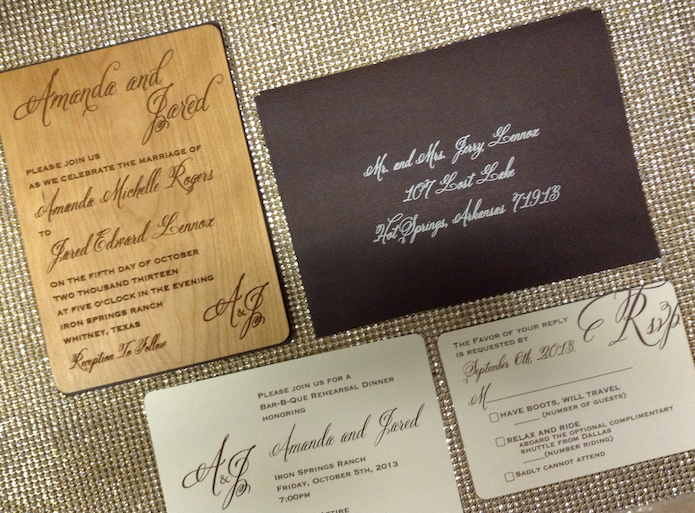 Amanda and
Jared
PLEASE JOIN US
AS WE CELEBRATE THE MARRIAGE OF
Amanda Michelle Rogers
TO
Jared Edward Lennox
ON THE FIFTH DAY OF OCTOBER
TWO THOUSAND THIRTEEN
AT FIVE O'CLOCK IN THE EVENING
IRON SPRINGS RANCH
WHITNEY, TEXAS
Reception To Follow
A&J
Mr. and Mrs. Jerry Lennox
107 Lost Lake
Hot Springs, Arkansas 71913
PLEASE JOIN US FOR A
BAR-B-QUE REHEARSAL DINNER
HONORING
Amanda and Jared
A&J
IRON SPRINGS RANCH
FRIDAY, OCTOBER 5TH, 2013
7:00PM
ATTIRE
Rsvp
THE FAVOR OF YOUR REPLY
IS REQUESTED BY
September 6th, 2013
M
HAVE BOOTS, WILL TRAVEL
(NUMBER OF GUESTS)
RELAX AND RIDE
ABOARD THE OPTIONAL COMPLIMENTARY
SHUTTLE FROM DALLAS
(NUMBER RIDING)
SADLY CANNOT ATTEND